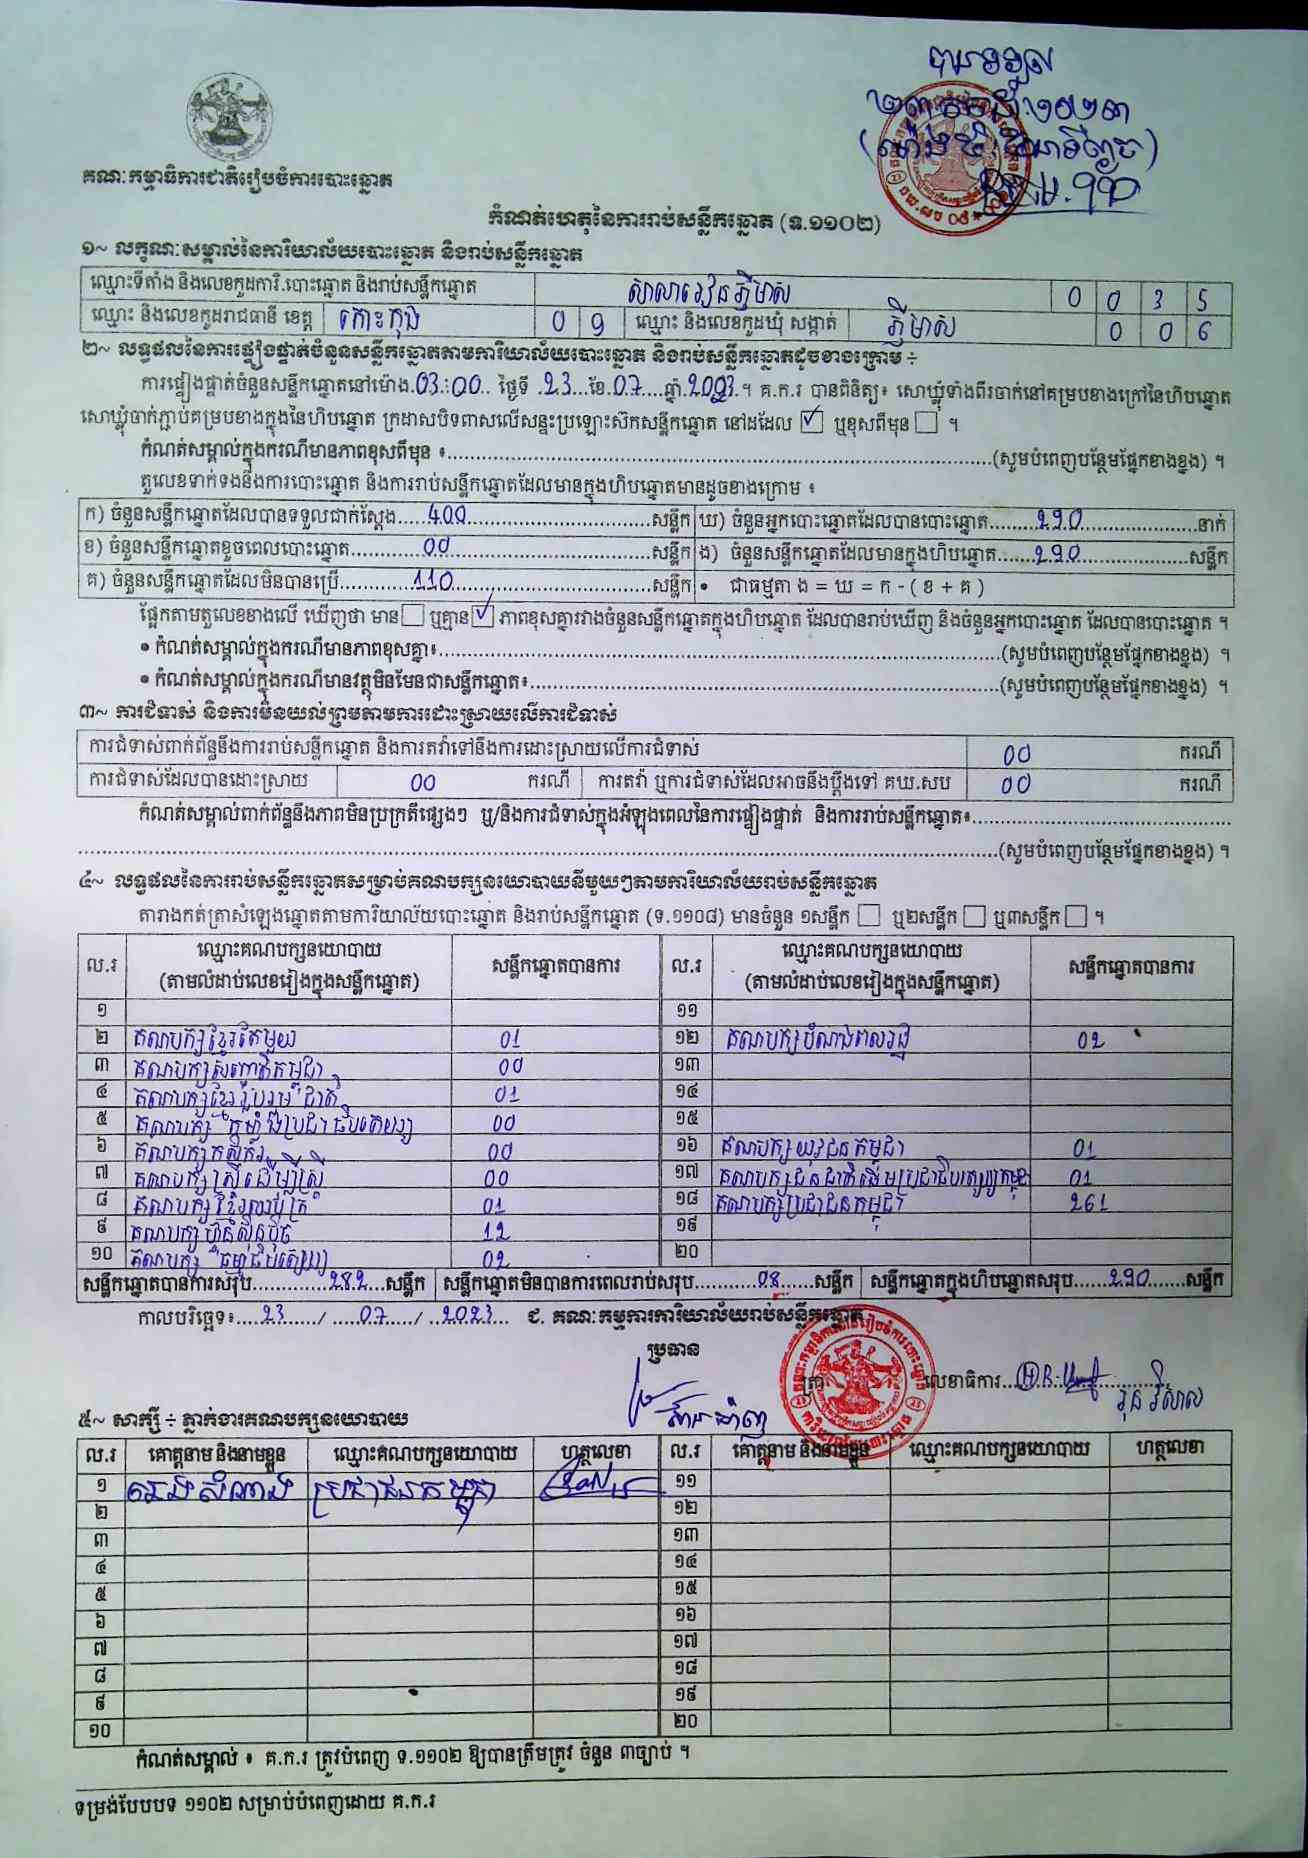 គណៈកម្មាធិការជាតិរៀបចំការបោះឆ្នោត
កំណត់ហេតុនៃការរាប់សន្លឹកឆ្នោត (ទ.១១០២)
១~ លក្ខណៈសម្គាល់នៃការិយាល័យបោះឆ្នោត និងរាប់សន្លឹកឆ្នោត
ឈ្មោះទីតាំង និងលេខកូដការិ.បោះឆ្នោត និងរាប់សន្លឹកឆ្នោត សាលារៀនភ្ញីមាស 0 0 3 5
ឈ្មោះ និងលេខកូដរាជធានី ខេត្ត កោះកុង 0 9 ឈ្មោះ និងលេខកូដឃុំ សង្កាត់ ភ្ញីមាស 0 0 6
២~ លទ្ធផលនៃការផ្ទៀងផ្ទាត់ចំនួនសន្លឹកឆ្នោតតាមការិយាល័យបោះឆ្នោត និងរាប់សន្លឹកឆ្នោតដូចខាងក្រោម ÷
ការផ្ទៀងផ្ទាត់ចំនួនសន្លឹកឆ្នោតនៅម៉ោង 03:00 ថ្ងៃទី 23 ខែ 07 ឆ្នាំ 2023។ គ.ក.រ បានពិនិត្យ៖ សោឃ្លុំទាំងពីរចាក់នៅគម្របខាងក្រៅនៃហិបឆ្នោត
សោឃ្លុំចាក់ភ្ជាប់គម្របខាងក្នុងនៃហិបឆ្នោត ក្រដាសបិទពាសលើសន្ទះប្រឡោះស៊កសន្លឹកឆ្នោត នៅដដែល ☑ ឬខុសពីមុន ☐ ។
កំណត់សម្គាល់ក្នុងករណីមានភាពខុសពីមុន ៖ (សូមបំពេញបន្ថែមផ្នែកខាងខ្នង) ។
តួលេខទាក់ទងនឹងការបោះឆ្នោត និងការរាប់សន្លឹកឆ្នោតដែលមានក្នុងហិបឆ្នោតមានដូចខាងក្រោម ៖
ក) ចំនួនសន្លឹកឆ្នោតដែលបានទទួលជាក់ស្តែង 400 សន្លឹក ឃ) ចំនួនអ្នកបោះឆ្នោតដែលបានបោះឆ្នោត 290 នាក់
ខ) ចំនួនសន្លឹកឆ្នោតខូចពេលបោះឆ្នោត 00 សន្លឹក ង) ចំនួនសន្លឹកឆ្នោតដែលមានក្នុងហិបឆ្នោត 290 សន្លឹក
គ) ចំនួនសន្លឹកឆ្នោតដែលមិនបានប្រើ 110 សន្លឹក • ជាធម្មតា ង = ឃ = ក - ( ខ + គ )
ផ្អែកតាមតួលេខខាងលើ ឃើញថា មាន ☐ ឬគ្មាន ☑ ភាពខុសគ្នារវាងចំនួនសន្លឹកឆ្នោតក្នុងហិបឆ្នោត ដែលបានរាប់ឃើញ និងចំនួនអ្នកបោះឆ្នោត ដែលបានបោះឆ្នោត ។
• កំណត់សម្គាល់ក្នុងករណីមានភាពខុសគ្នា៖ (សូមបំពេញបន្ថែមផ្នែកខាងខ្នង) ។
• កំណត់សម្គាល់ក្នុងករណីមានវត្ថុមិនមែនជាសន្លឹកឆ្នោត៖ (សូមបំពេញបន្ថែមផ្នែកខាងខ្នង) ។
៣~ ការជំទាស់ និងការមិនយល់ព្រមតាមការដោះស្រាយលើការជំទាស់
ការជំទាស់ពាក់ព័ន្ធនឹងការរាប់សន្លឹកឆ្នោត និងការតវ៉ាទៅនឹងការដោះស្រាយលើការជំទាស់ 00 ករណី
ការជំទាស់ដែលបានដោះស្រាយ 00 ករណី ការតវ៉ា ឬការជំទាស់ដែលអាចនឹងប្តឹងទៅ គឃ.សប 00 ករណី
កំណត់សម្គាល់ពាក់ព័ន្ធនឹងភាពមិនប្រក្រតីផ្សេងៗ ឬ/និងការជំទាស់ក្នុងអំឡុងពេលនៃការផ្ទៀងផ្ទាត់ និងការរាប់សន្លឹកឆ្នោត៖
(សូមបំពេញបន្ថែមផ្នែកខាងខ្នង) ។
៤~ លទ្ធផលនៃការរាប់សន្លឹកឆ្នោតសម្រាប់គណបក្សនយោបាយនីមួយៗតាមការិយាល័យរាប់សន្លឹកឆ្នោត
តារាងកត់ត្រាសំឡេងឆ្នោតតាមការិយាល័យបោះឆ្នោត និងរាប់សន្លឹកឆ្នោត (ទ.១១០៨) មានចំនួន ១សន្លឹក ☐ ឬ២សន្លឹក ☐ ឬ៣សន្លឹក ☐ ។
ល.រ ឈ្មោះគណបក្សនយោបាយ (តាមលំដាប់លេខរៀងក្នុងសន្លឹកឆ្នោត) សន្លឹកឆ្នោតបានការ ល.រ ឈ្មោះគណបក្សនយោបាយ (តាមលំដាប់លេខរៀងក្នុងសន្លឹកឆ្នោត) សន្លឹកឆ្នោតបានការ
១ ១១
២ គណបក្សខ្មែរតែមួយ 01 ១២ គណបក្សបំណងពលរដ្ឋ 02
៣ គណបក្សសញ្ជាតិកម្ពុជា 00 ១៣
៤ គណបក្សខ្មែររួបរួមជាតិ 01 ១៤
៥ គណបក្សកម្លាំងប្រជាធិបតេយ្យ 00 ១៥
៦ គណបក្សកសិករ 00 ១៦ គណបក្សយុវជនកម្ពុជា 01
៧ គណបក្សស្ត្រីដើម្បីស្ត្រី 00 ១៧ គណបក្សជនជាតិដើមប្រជាធិបតេយ្យកម្ពុជា 01
៨ គណបក្ស 01 ១៨ គណបក្សប្រជាជនកម្ពុជា 261
៩ គណបក្សហ៊្វុនស៊ិនប៉ិច 12 ១៩
១០ គណបក្ស 02 ២០
សន្លឹកឆ្នោតបានការសរុប 282 សន្លឹក សន្លឹកឆ្នោតមិនបានការពេលរាប់សរុប 08 សន្លឹក សន្លឹកឆ្នោតក្នុងហិបឆ្នោតសរុប 290 សន្លឹក
កាលបរិច្ឆេទ៖ 23 / 07 / 2023 ជ. គណៈកម្មការការិយាល័យរាប់សន្លឹកឆ្នោត
ប្រធាន
ត្រា លេខាធិការ
៥~ សាក្សី ÷ ភ្នាក់ងារគណបក្សនយោបាយ
ល.រ គោត្តនាម និងនាមខ្លួន ឈ្មោះគណបក្សនយោបាយ ហត្ថលេខា ល.រ គោត្តនាម និងនាមខ្លួន ឈ្មោះគណបក្សនយោបាយ ហត្ថលេខា
១ ប្រជាជនកម្ពុជា ១១
២ ១២
៣ ១៣
៤ ១៤
៥ ១៥
៦ ១៦
៧ ១៧
៨ ១៨
៩ ១៩
១០ ២០
កំណត់សម្គាល់ ៖ គ.ក.រ ត្រូវបំពេញ ទ.១១០២ ឱ្យបានត្រឹមត្រូវ ចំនួន ៣ច្បាប់ ។
ទម្រង់បែបបទ ១១០២ សម្រាប់បំពេញដោយ គ.ក.រ